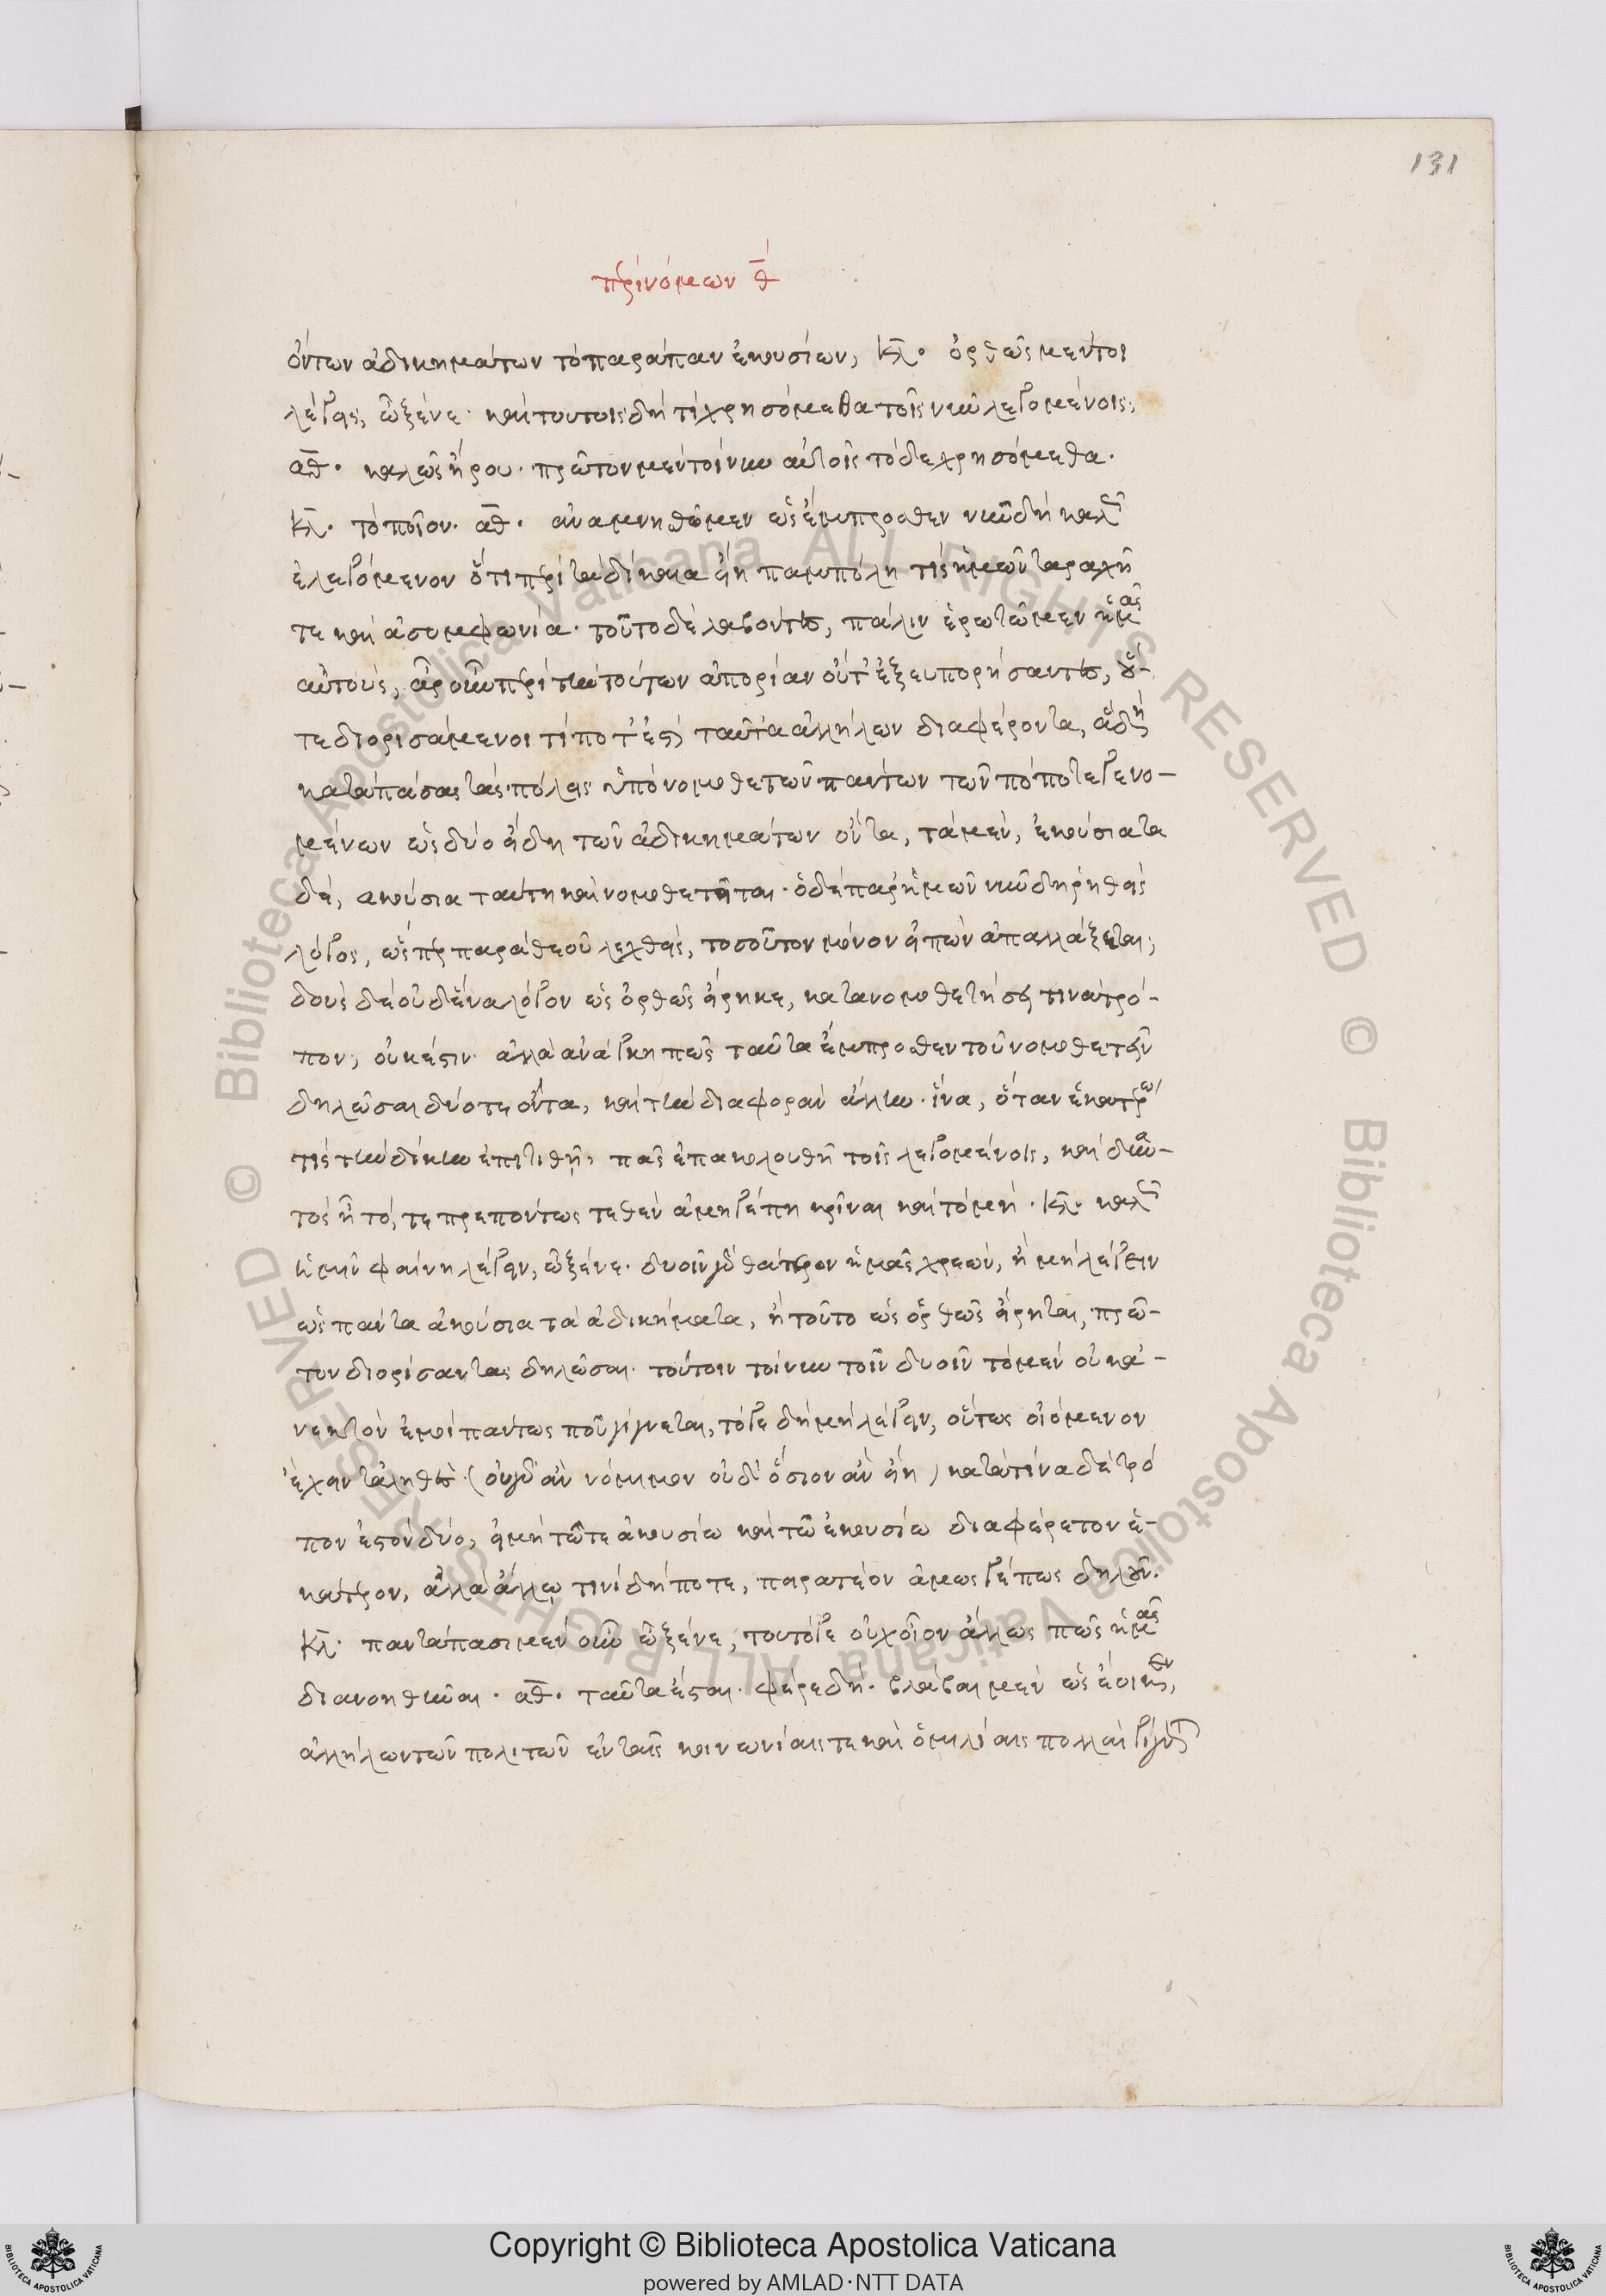 131
περὶ νόμων θ̅
ὄντων ἀδικημάτων τὸ παράπαν ἑκουσίων, κλ̅. ὀρθῶς μέντοι
λέγεις, ὦ ξένε· καὶ τούτοις δὴ τί χρησόμεθα τοῖς νῦν λεγομένοις;
αθ̅. καλῶς ἤρου. πρῶτον μὲν τοίνυν αὐτοῖς τόδε χρησόμεθα.
κλ̅. τὸ ποῖον. αθ̅. ἀναμνησθῶμεν ὡς ἔμπροσθεν νῦν δὴ καλῶς
ἐλέγομεν ὅτι περὶ τὰ δίκαια εἴη παμπόλλη τις ἡμῶν ταραχή
τε καὶ ἀσυμφωνία. τοῦτο δὲ λαβόντες, πάλιν ἐρωτῶμεν ἡμᾶς
αὐτούς, ἆρ' οὖν περὶ τὴν τούτων ἀπορίαν οὔτ' ἐξευπορήσαντες, οὔ-
τε διορισάμενοι τί ποτ' ἐστὶ ταῦτα ἀλλήλων διαφέροντα, ἃ δὴ
κατὰ πάσας τὰς πόλεις ὑπὸ νομοθετῶν πάντων τῶν πόποτε γενο-
μένων ὡς δύο εἴδη τῶν ἀδικημάτων ὄντα, τὰ μὲν, ἑκούσια τὰ
δὲ, ἀκούσια ταύτη καὶ νομοθετεῖται. ὁ δὲ παρ' ἡμῶν νῦν δὴ ῥηθεὶς
λόγος, ὥσπερ παρὰ θεοῦ λεχθεὶς, τοσοῦτον μόνον εἰπὼν ἀπαλλάξεται;
δοὺς δὲ οὐδένα λόγον ὡς ὀρθῶς εἴρηκε, κατανομοθετήσει τινὰ τρό-
πον; οὐκ ἔστιν. ἀλλὰ ἀνάγκη πως ταῦτα ἔμπροσθεν τοῦ νομοθετεῖν
δηλῶσαι δύο τε ὄντα, καὶ τὴν διαφορὰν ἄλλην. ἵνα, ὅταν ἑκατέρῳ
τις τὴν δίκην ἐπιτιθῇ, πᾶς ἐπακολουθῇ τοῖς λεγομένοις, καὶ δυνα-
τὸς ᾖ τό, τε πρεπόντως τεθὲν ἁμηγέπη κρῖναι καὶ τὸ μή. κλ̅. καλῶς
ἡμῖν φαίνη λέγειν, ὦ ξένε. δυοῖν γὰρ θάτερον ἡμᾶς χρεών, ἢ μὴ λέγειν
ὡς πάντα ἀκούσια τὰ ἀδικήματα, ἢ τοῦτο ὡς ὀρθῶς εἴρηται, πρῶ-
τον διορίσαντας δηλῶσαι. τούτοιν τοίνυν τοῖν δυοῖν τὸ μὲν οὐκ ἀ-
νεκτὸν ἐμοὶ πάντως που γίγνεται, τό γε δὴ μὴ λέγειν, οὕτως οἰόμενον
ἔχειν τἀληθὲς (οὐ γὰρ ἂν νόμιμον οὐδ' ὅσιον ἂν εἴη) κατὰ τίνα δὲ τρό
πον ἐστὸν δύο, εἰ μὴ τῶ τε ἀκουσίω καὶ τῶ ἑκουσίω διαφέρετον ἑ-
κάτερον, ἀλλὰ ἄλλῳ τινὶ δήποτε, πειρατέον ἁμῶς γέ πως δηλοῦν.
κλ̅. παντάπασι μὲν οὖν ὦ ξένε, τοῦτό γε οὐχ οἷον ἄλλως πως ἡμᾶς
διανοηθῆναι. αθ̅. ταῦτα ἔσται. φέρε δή. βλάβαι μὲν ὡς ἔοικεν,
ἀλλήλων τῶν πολιτῶν ἐν ταῖς κοινωνίαις τε καὶ ὁμιλίαις πολλαὶ γίγνονται
Copyright © Biblioteca Apostolica Vaticana
powered by AMLAD·NTT DATA
© Biblioteca Apostolica Vaticana ALL RIGHTS RESERVED
© Biblioteca Apostolica Vaticana ALL RIGHTS RESERVED
BIBLIOTECA APOSTOLICA VATICANA
BIBLIOTECA APOSTOLICA VATICANA